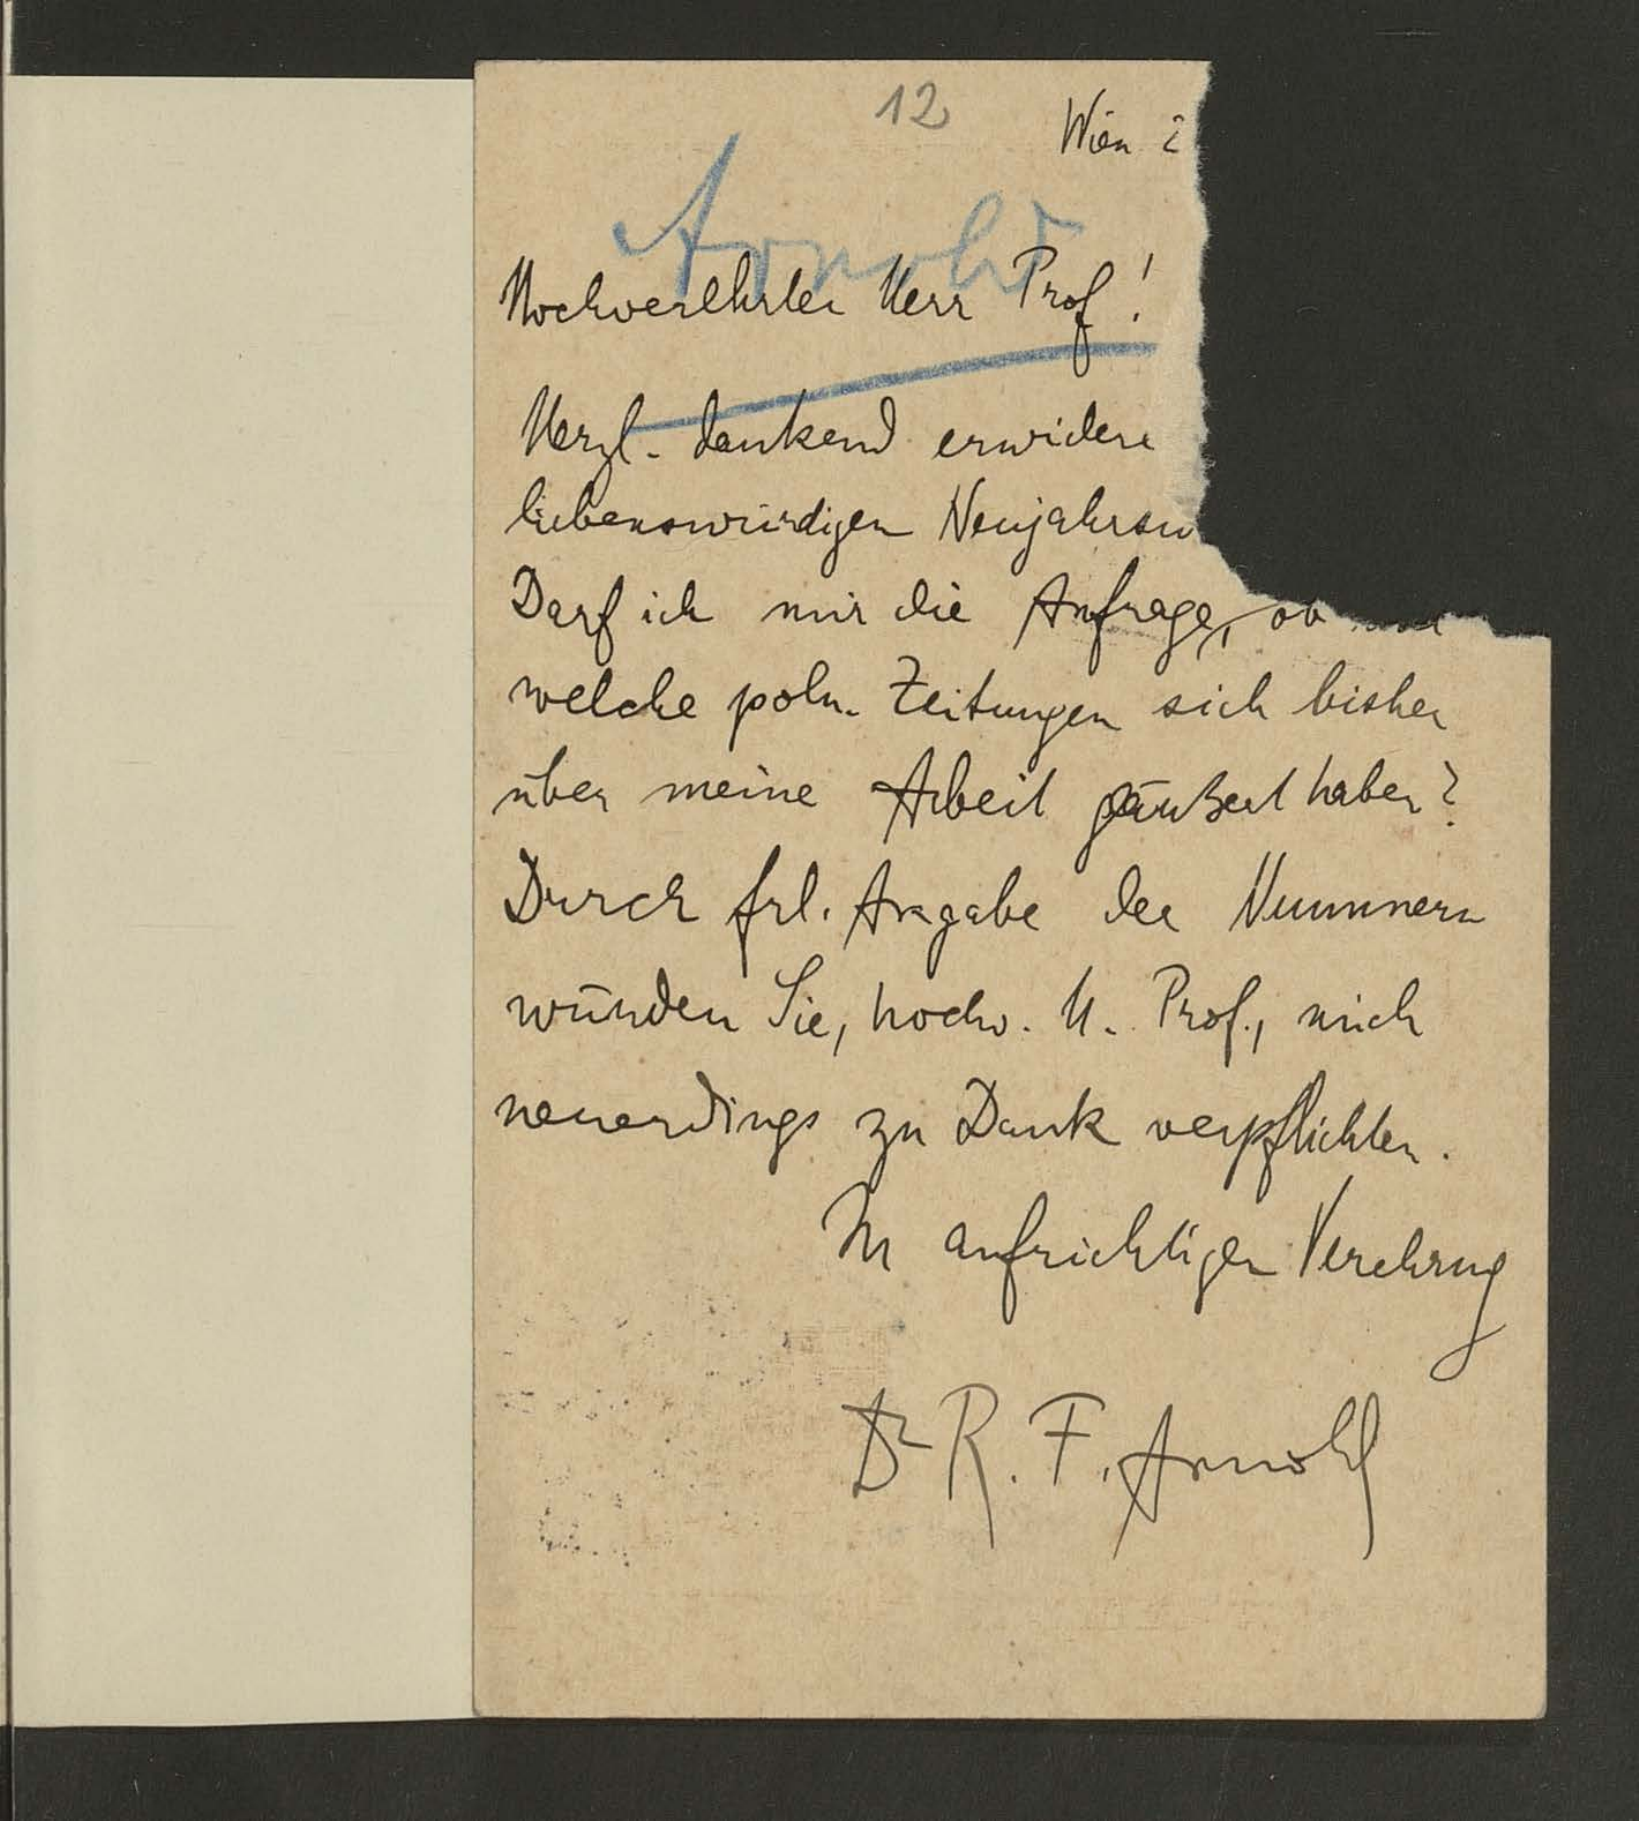 12
Wien 2
Arnold
Hochverehrter Herr Prof!
Herzl. dankend erwidere
liebenswürdigen Neujahrsw
Darf ich mir die Anfrage, ob
welche poln. Zeitungen sich bisher
über meine Arbeit geäußert haben?
Durch frl. Angabe der Nummern
würden Sie, hochv. H. Prof., mich
neuerdings zu Dank verpflichten.
In aufrichtiger Verehrung
Dr R. F. Arnold